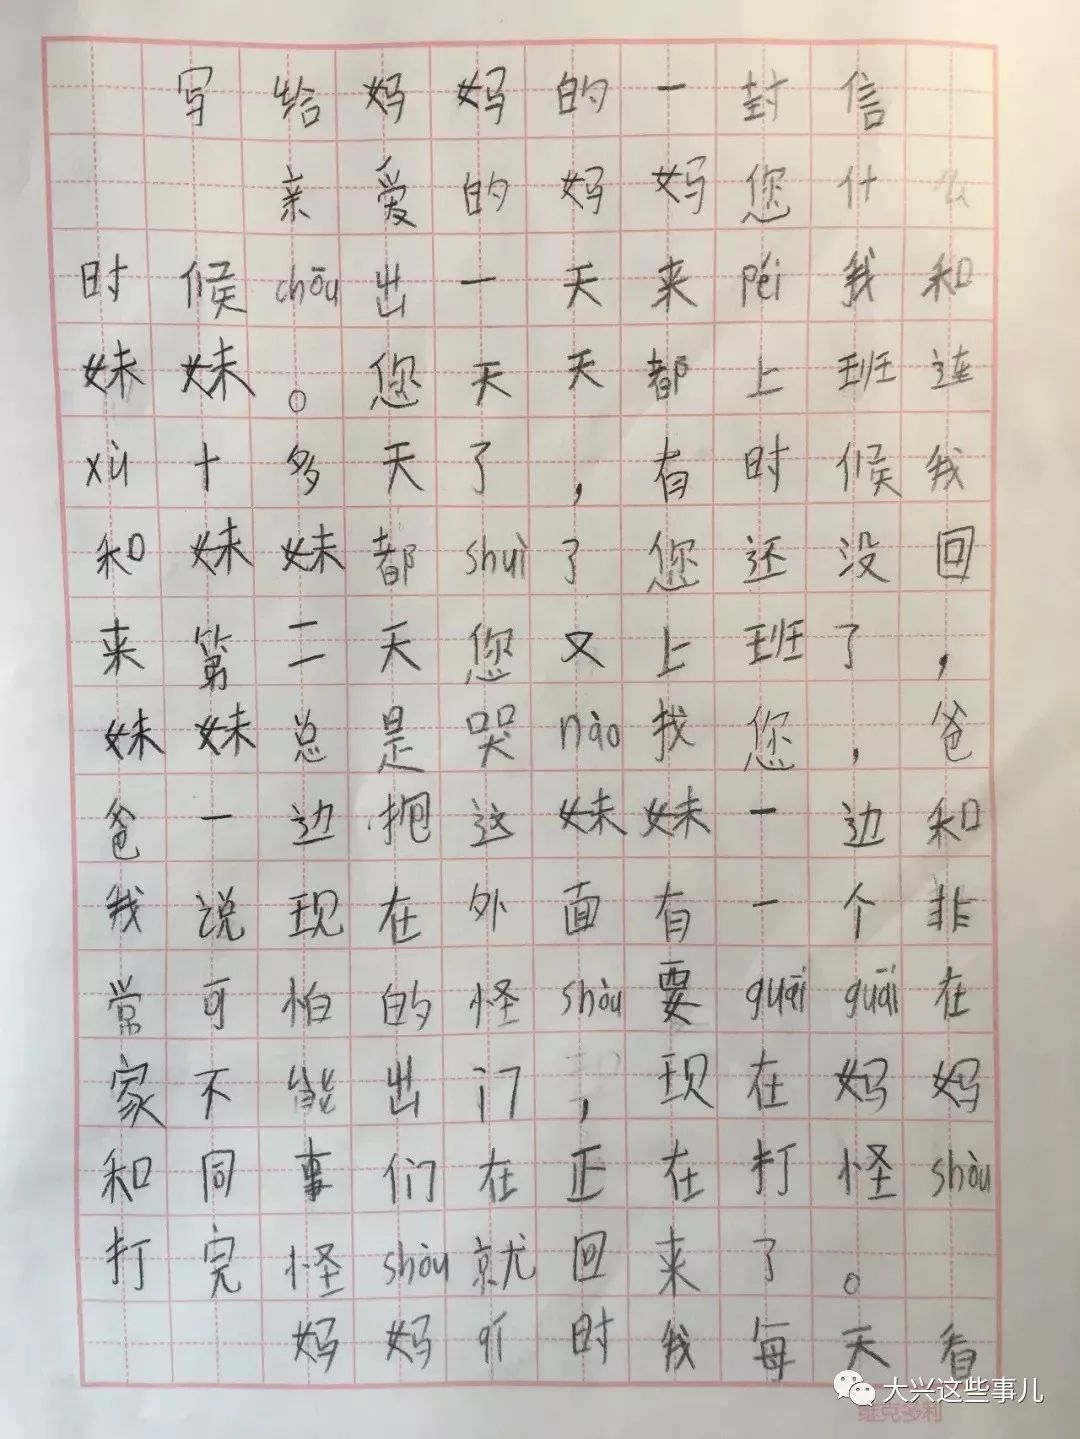 写给妈妈的一封信
亲爱的妈妈您什么
时候chōu出一天来péi我和
妹妹。您天天都上班连
xù十多天了，有时候我
和妹妹都shuì了您还没回
来第二天您又上班了，
妹妹总是哭nào找您，爸
爸一边抱这妹妹一边和
我说现在外面有一个非
常可怕的怪shòu要guāi guāi在
家不能出门，现在妈妈
和同事们在正在打怪shòu
打完怪shòu就回来了。
妈妈qí时我每天看
大兴这些事儿
维克多利